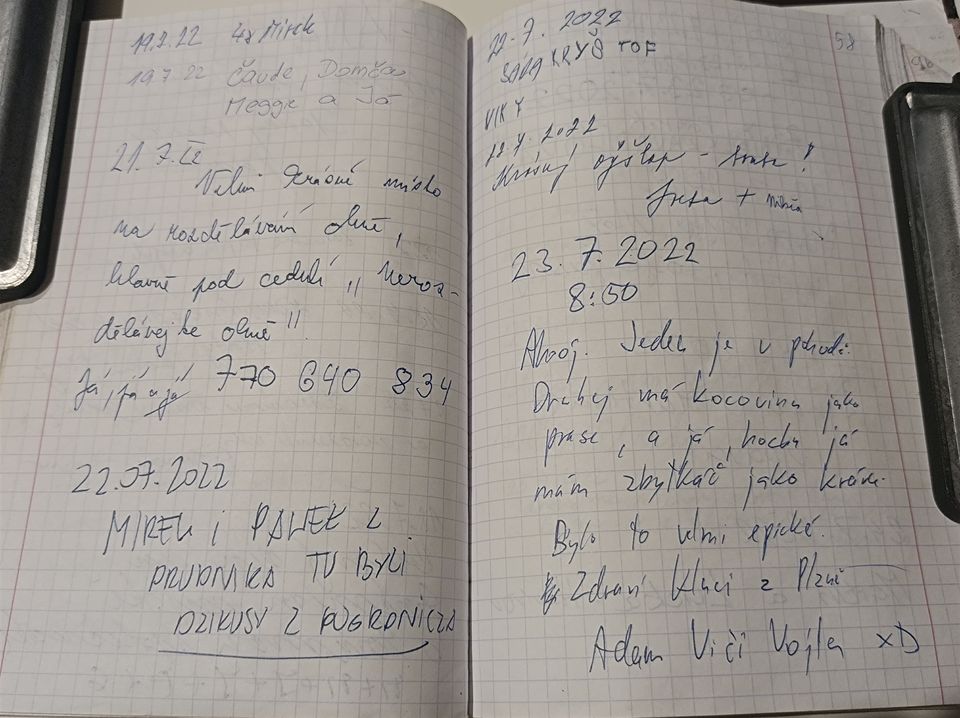 19.7.22 4x Mirek
19.7.22 Čaude, Domča
Meggie a Já
21.7.22
Velmi krásné místo
na rozdělávání ohně,
hlavně pod cedulí ,, Neroz-
dělávejte ohně"
Já, já a já 770 640 834
22.07.2022
MIREK i PAWEŁ Z
PRUDNIKA TU BYLI
DZIKUSY Z POGRANICZA
22.7.2022
58
KRYŠTOF
22.7.2022
Krásný výšlap - !
+
23.7.2022
8:50
Ahoj. Jeden je v pohodě.
Druhej má kocovinu jako
prase, a já, hochu já
mám zbytkáč jako kráva.
Bylo to velmi epické.
Zdraví kluci z Plzně
Adam Viči Vojta xD